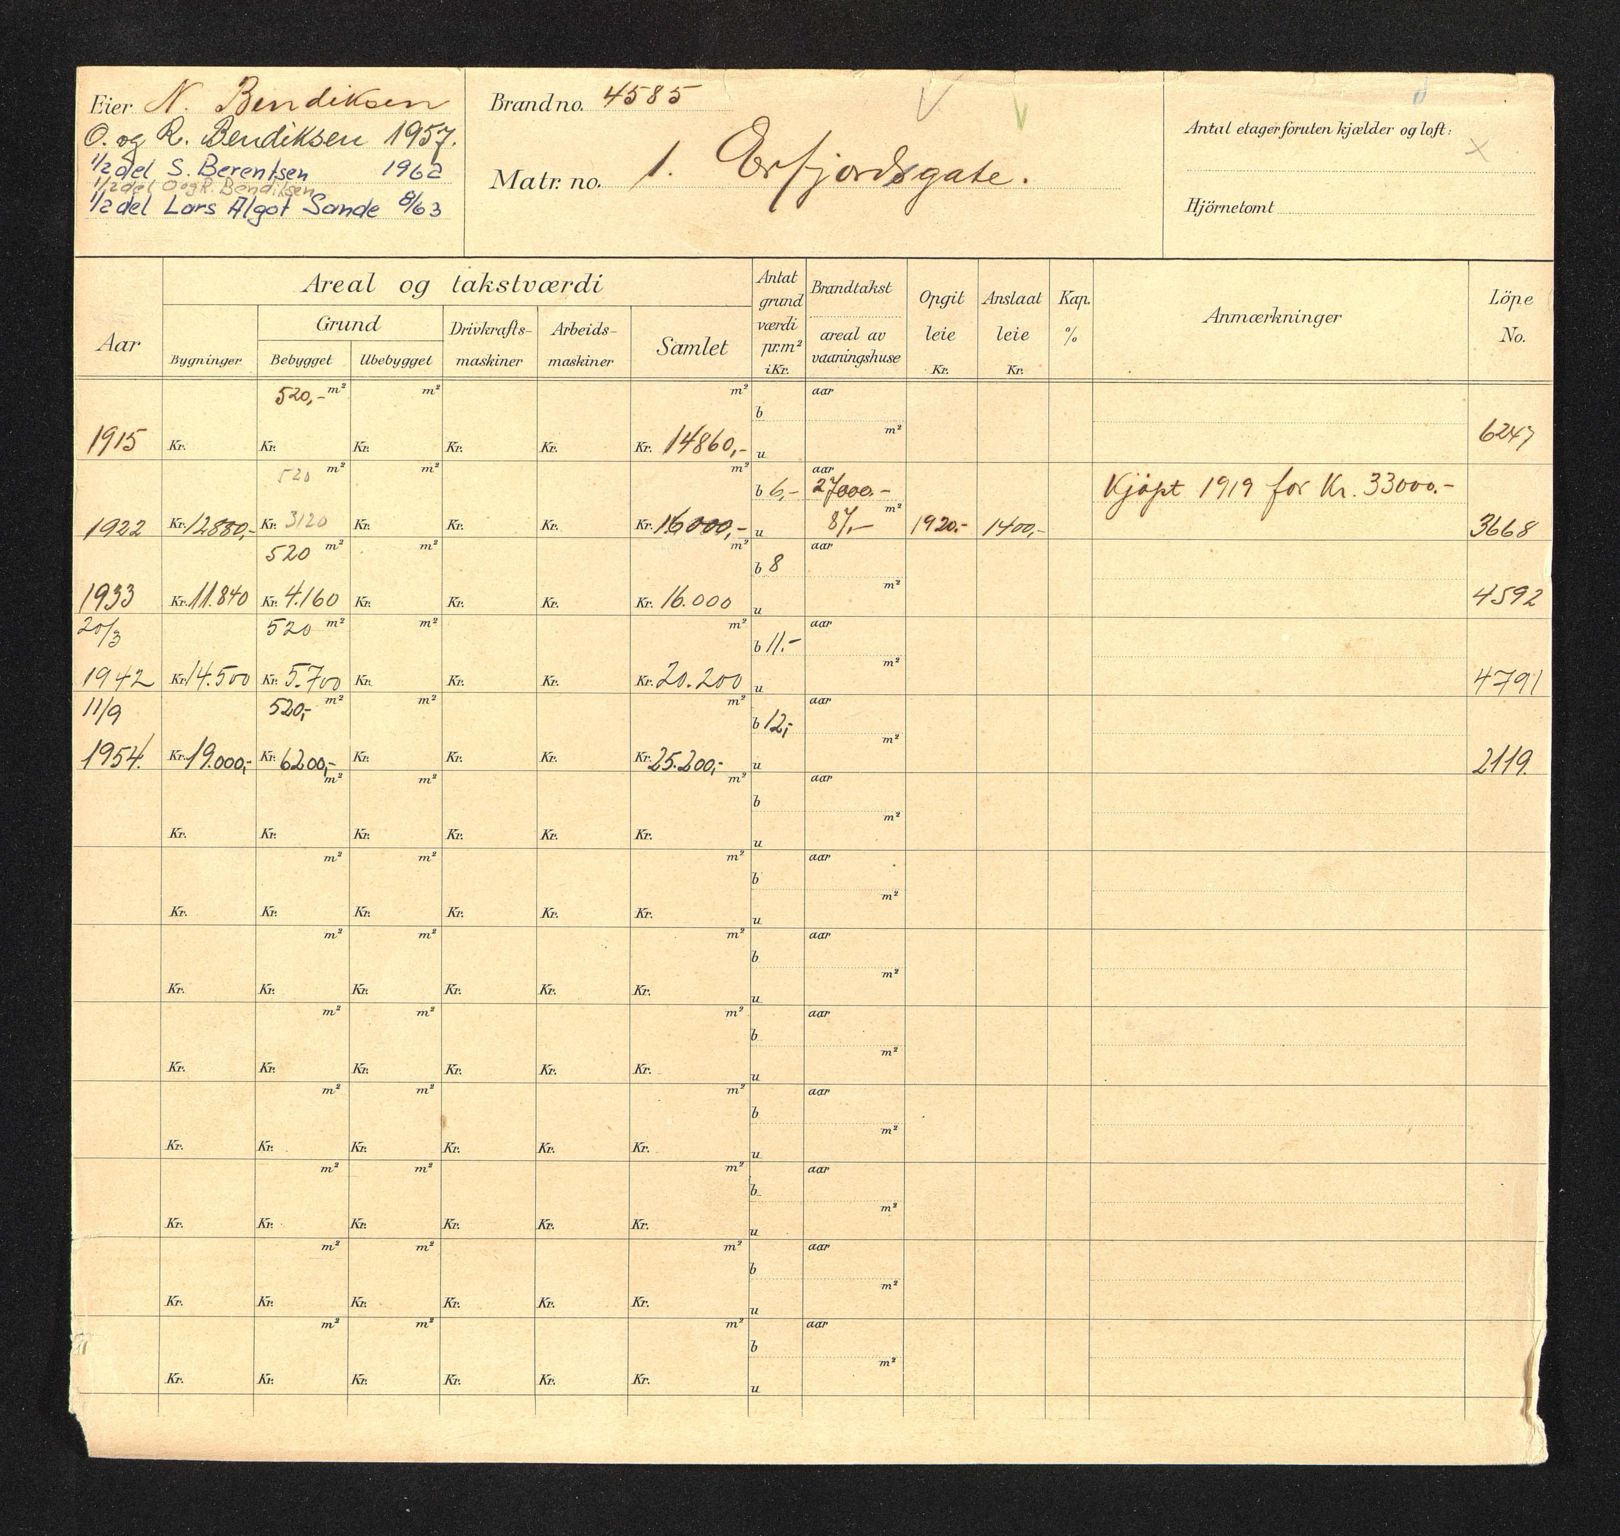 Eier N. Bendiksen
O. og R. Bendiksen 1957.
1/2 del S. Berentsen 1962
1/2 del O og R. Bendiksen
1/2 del Lars Algot Sande 8/63
Brand no. 4585
Matr. no. 1. Erfjordsgate.
Antal etager foruten kjælder og loft:
×
Hjörnetomt
Aar
Areal og takstværdi
Bygninger
Grund
Bebygget
Ubebygget
Drivkrafts-
maskiner
Arbeids-
maskiner
Samlet
Antat
grund
værdi
pr.m²
i Kr.
Brandtakst
areal av
vaaningshuse
Opgit
leie
Kr.
Anslaat
leie
Kr.
Kap.
%
Anmærkninger
Löpe
No.
520,- m² m² m² b aar
1915 Kr. Kr. Kr. Kr. Kr. Kr. 14860,- u m² 6247
520 m² m² m² b 6,- aar 27000.- Kjøpt 1919 for Kr. 33000.-
1922 Kr. 12880,- Kr. 3120 Kr. Kr. Kr. Kr. 16000,- u 87,- m² 1920.- 1400,- 3668
520 m² m² m² b 8 aar
1933 Kr. 11.840 Kr. 4.160 Kr. Kr. Kr. Kr. 16.000 u m² 4592
20/3 520 m² m² m² b 11.- aar
1942 Kr. 14.500 Kr. 5.700 Kr. Kr. Kr. Kr. 20.200 u m² 4791
11/9 520,- m² m² m² b 12,- aar
1954. Kr. 19.000,- Kr. 6200,- Kr. Kr. Kr. Kr. 25.200,- u m² 2119.
m² m² m² b aar
Kr. Kr. Kr. Kr. Kr. Kr. u m²
m² m² m² b aar
Kr. Kr. Kr. Kr. Kr. Kr. u m²
m² m² m² b aar
Kr. Kr. Kr. Kr. Kr. Kr. u m²
m² m² m² b aar
Kr. Kr. Kr. Kr. Kr. Kr. u m²
m² m² m² b aar
Kr. Kr. Kr. Kr. Kr. Kr. u m²
m² m² m² b aar
Kr. Kr. Kr. Kr. Kr. Kr. u m²
m² m² m² b aar
Kr. Kr. Kr. Kr. Kr. Kr. u m²
m² m² m² b aar
Kr. Kr. Kr. Kr. Kr. Kr. u m²